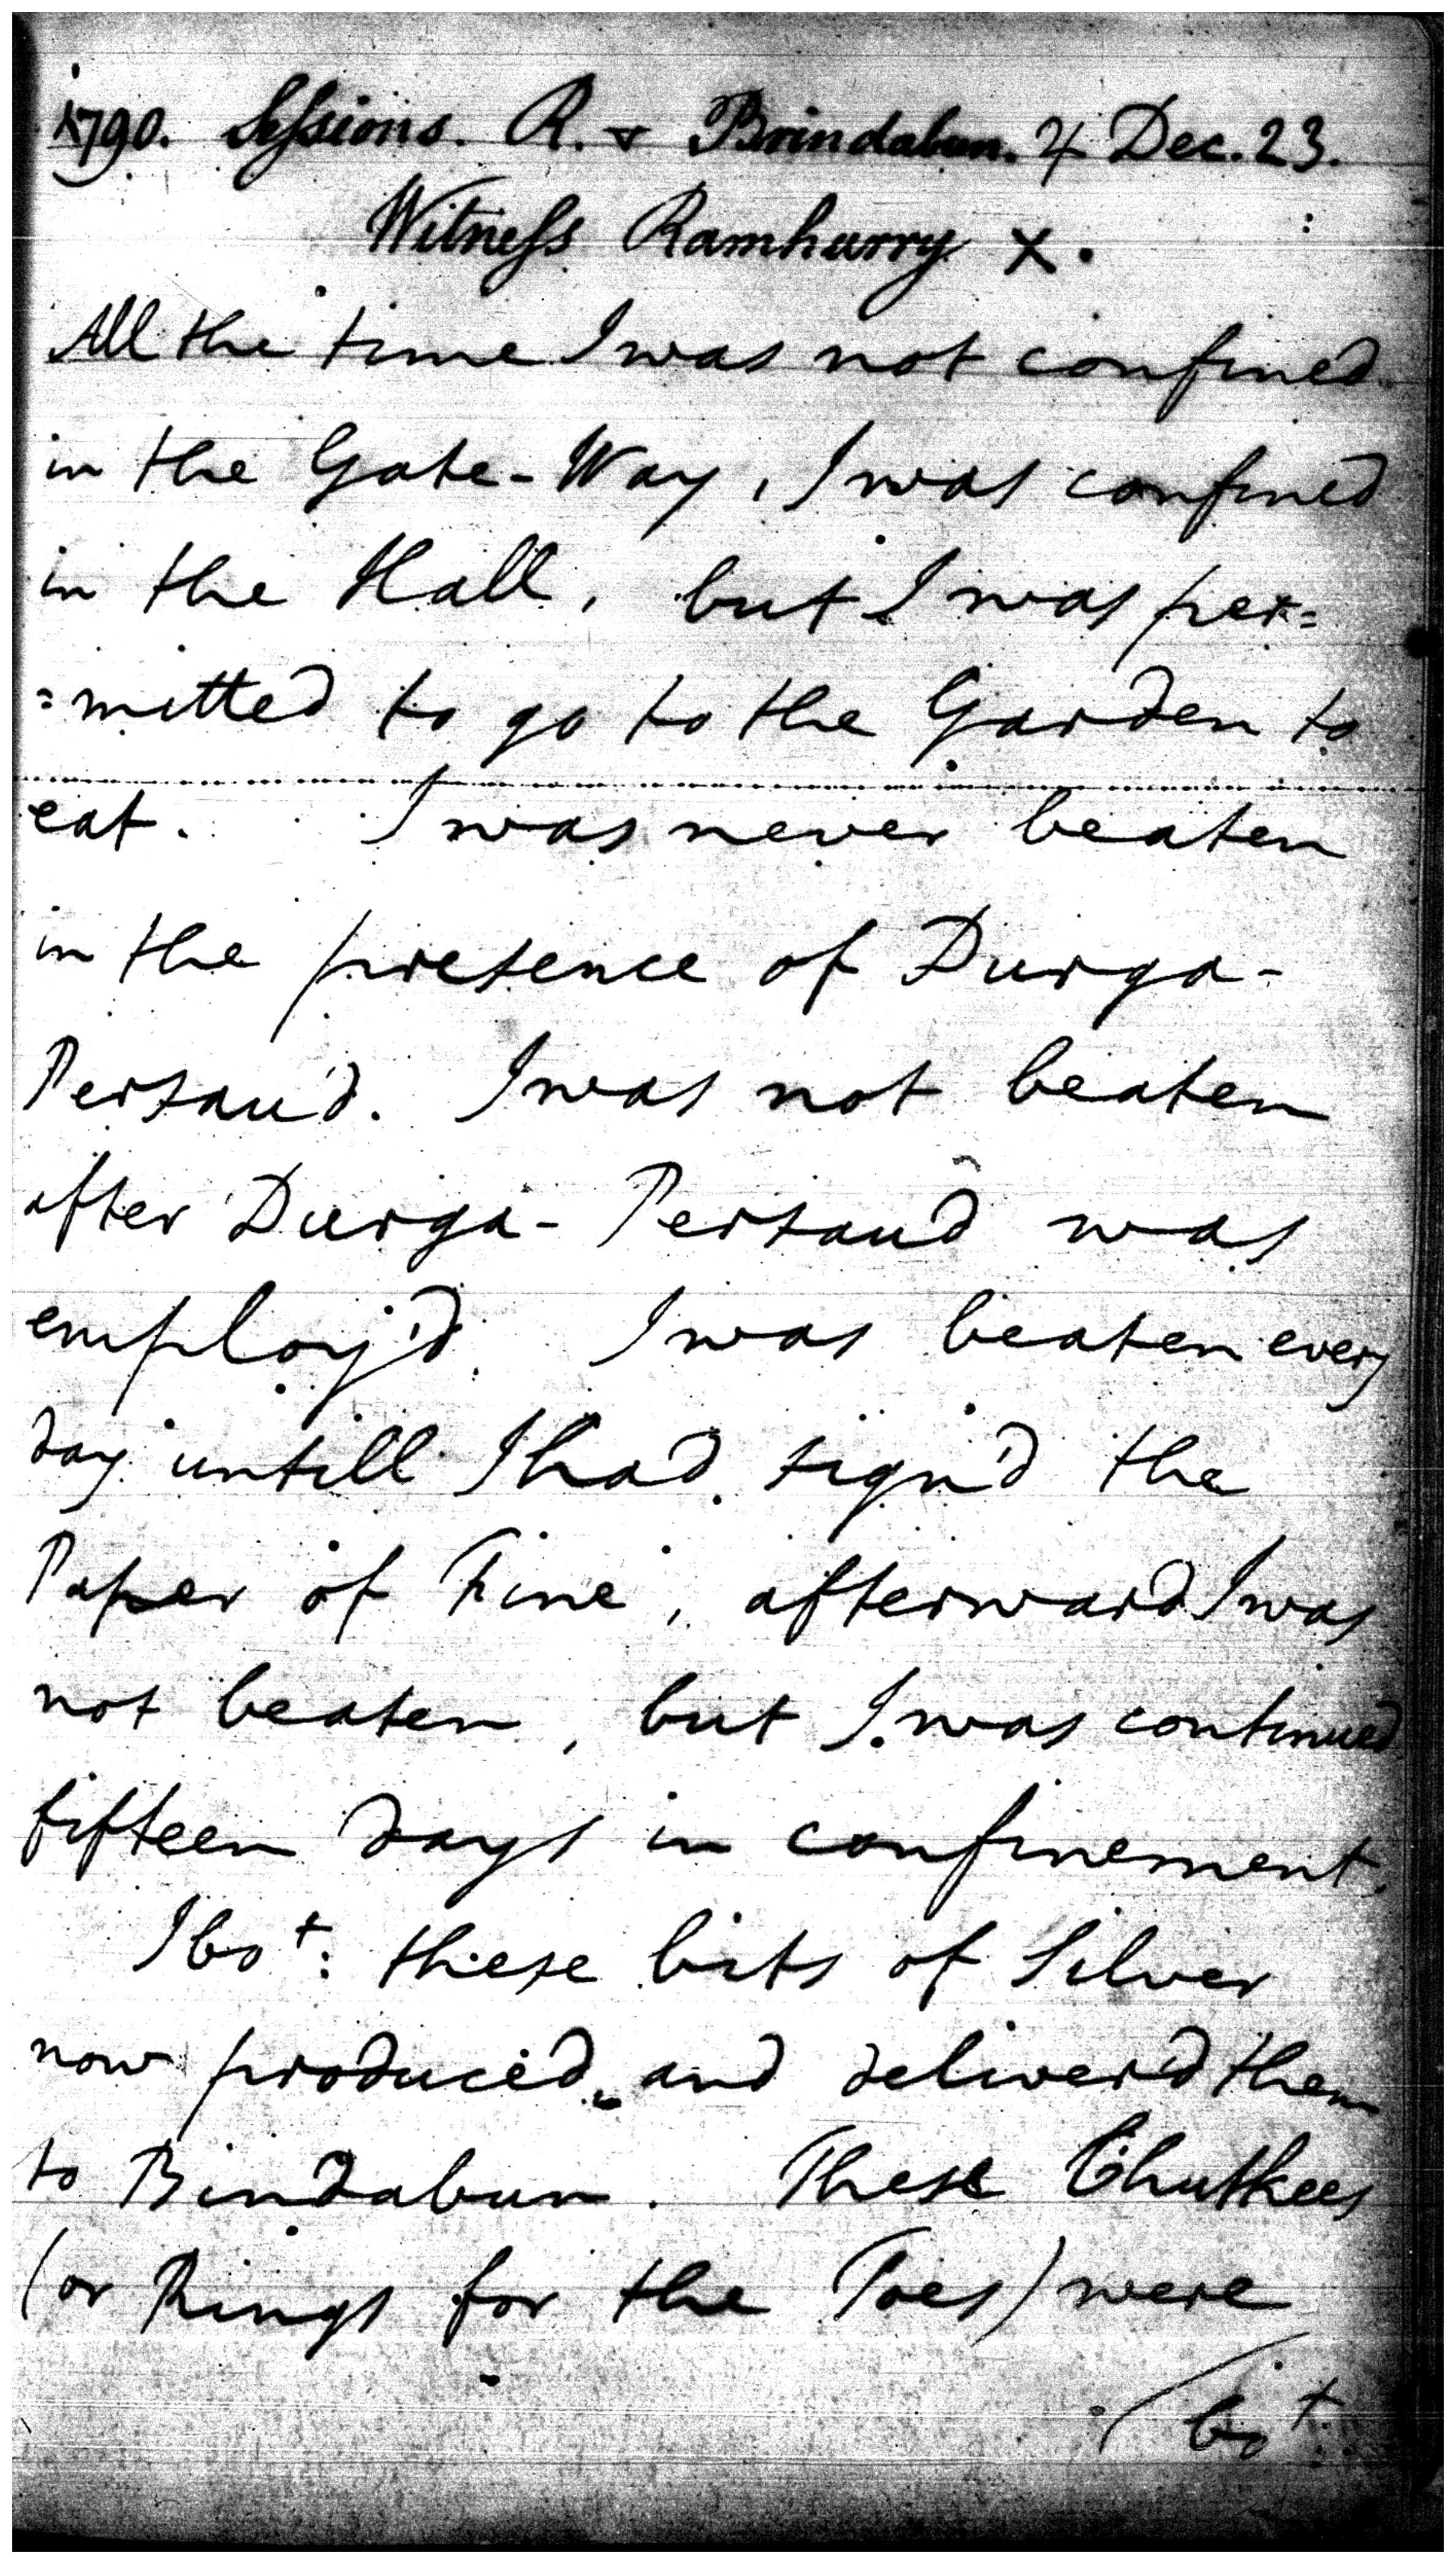 1790. Sessions. R. v Brindabun. ♃ Dec. 23.
Witness Ramhurry X.
All the time I was not confined
in the Gate-Way, I was confined
in the Hall, but I was per=
=mitted to go to the Garden to
eat. I was never beaten
in the presence of Durga-
Persaud. I was not beaten
after Durga-Persaud was
employ'd. I was beaten every
day untill I had sign'd the
Paper of Fine, afterward I was
not beaten, but I was continued
fifteen days in confinement.
I bot: these bits of Silver
now produced, and deliver'd them
to Bindabun. These Chutkees
(or Rings for the Toes) were
bot: